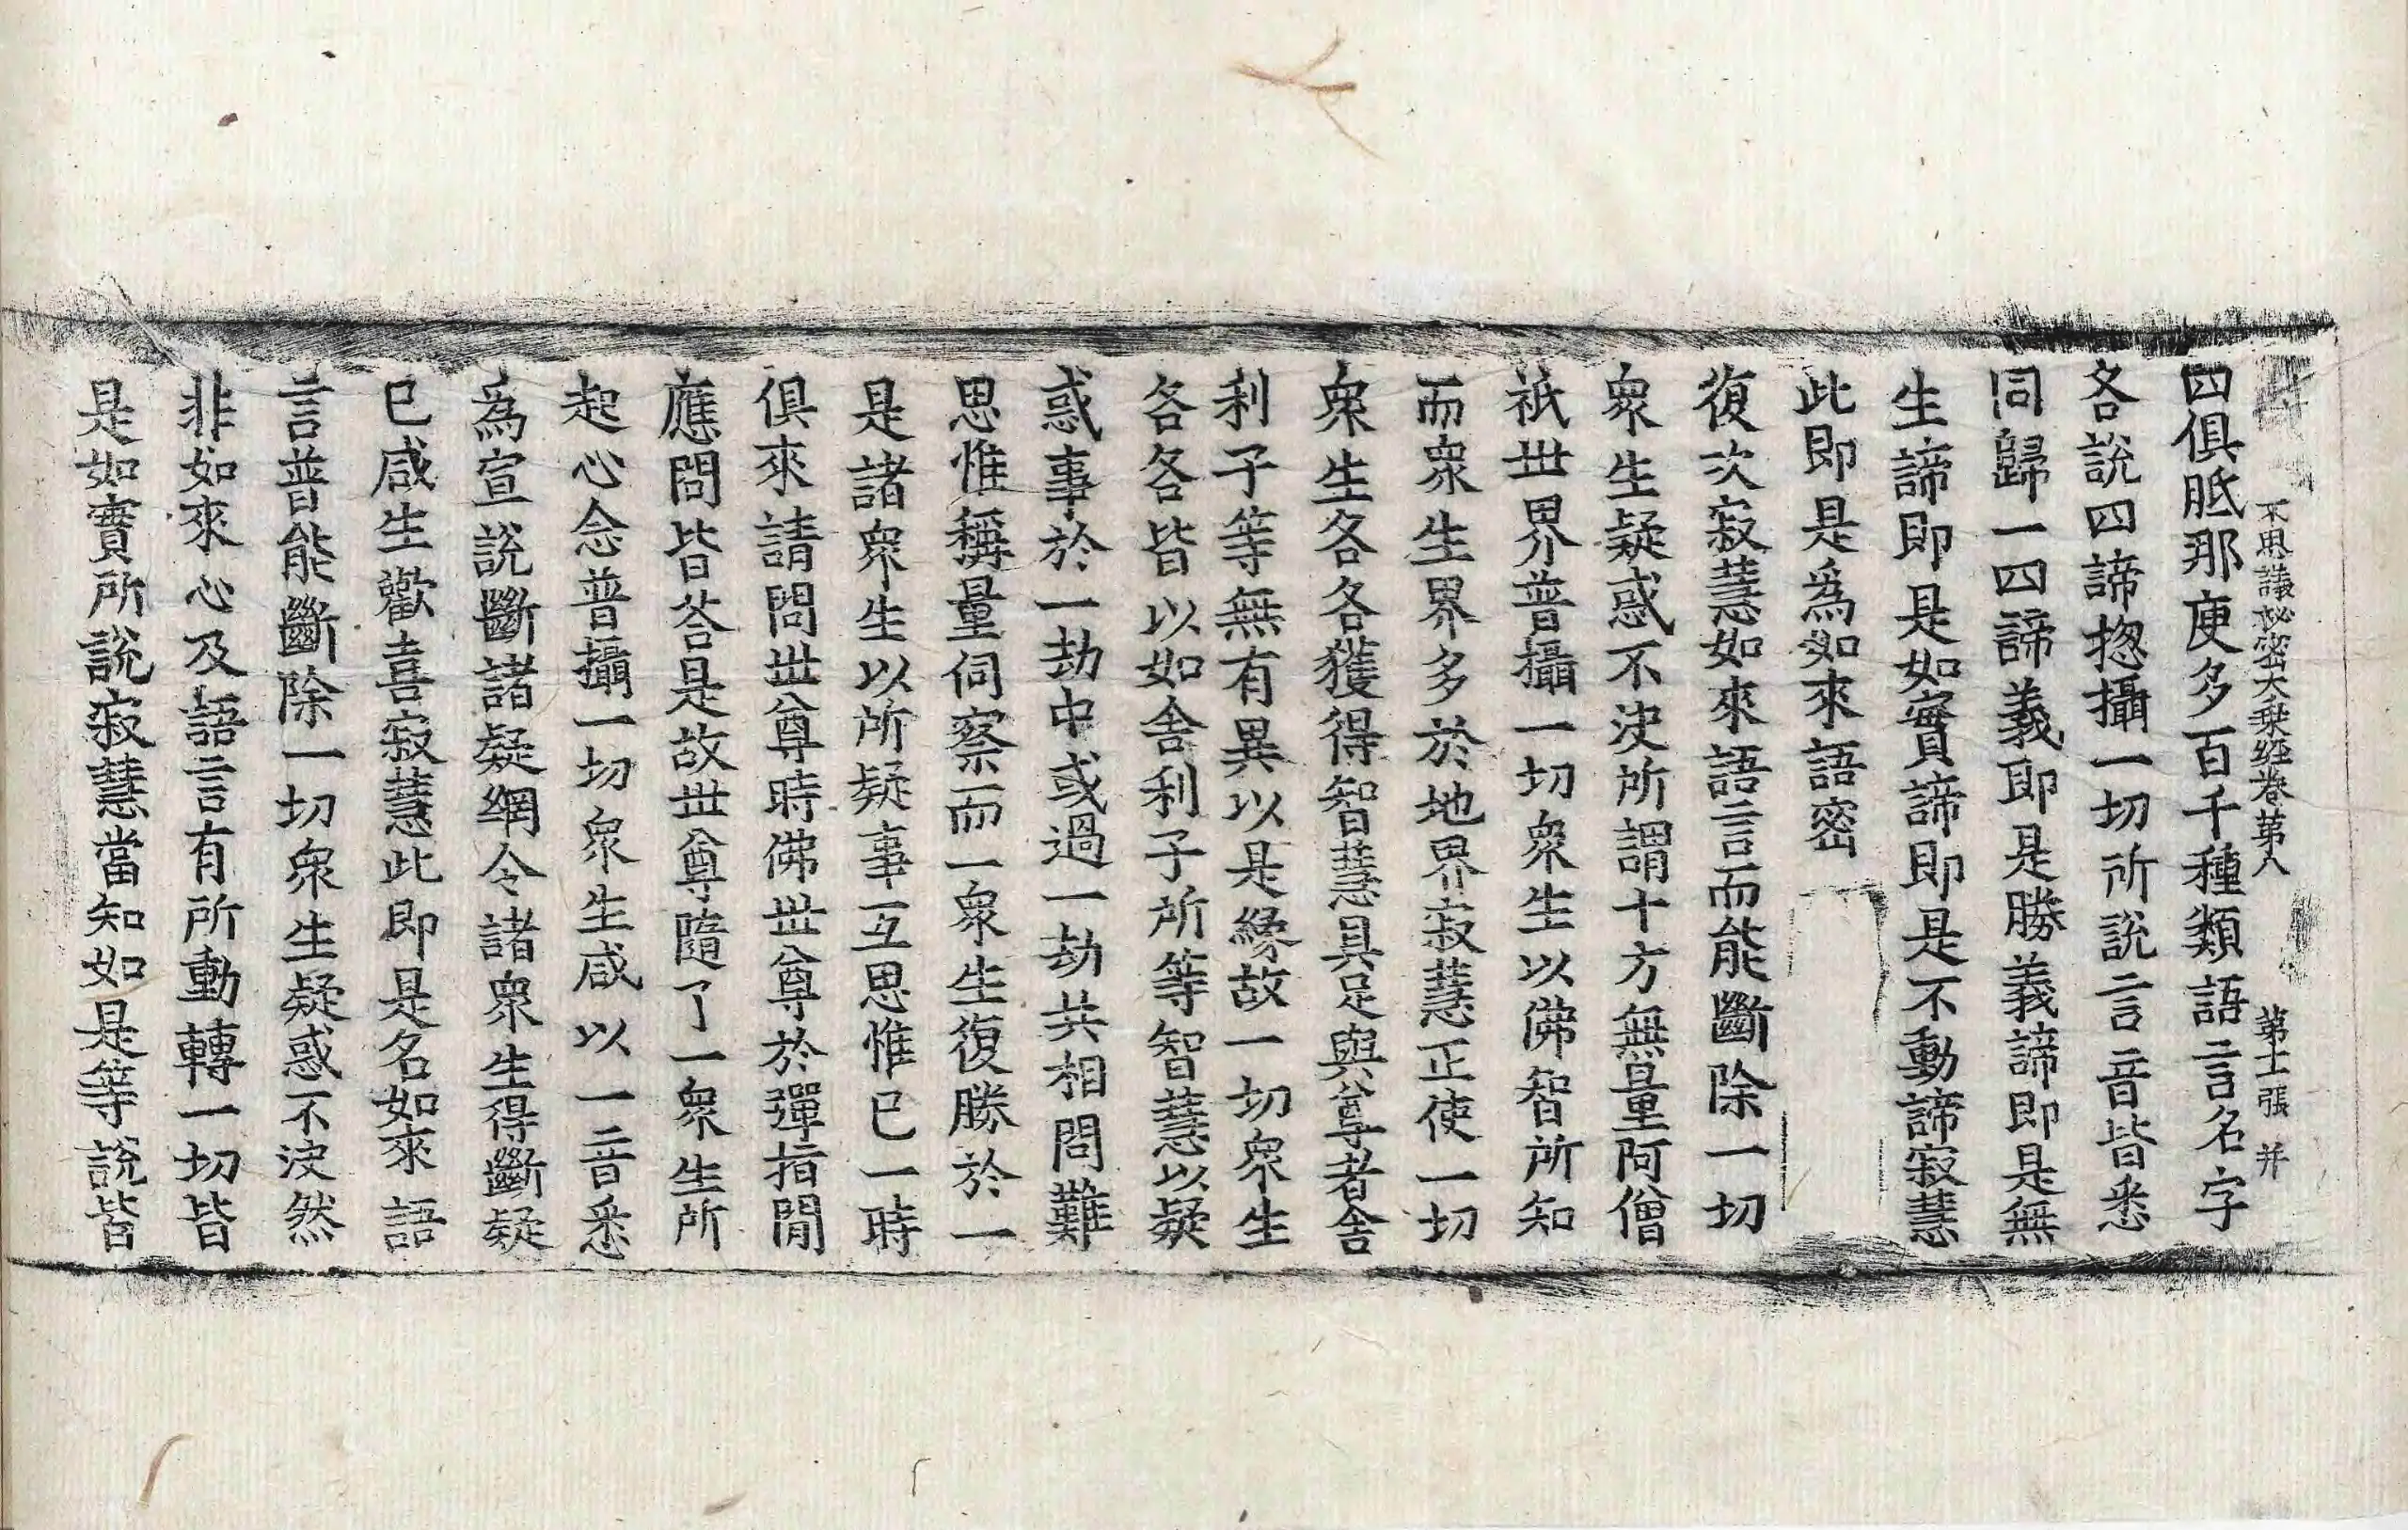 不思議秘密大乗経卷第八 第十一張 并
四俱胝那庾多百千種類語言名字
各說四諦揔攝一切所說言音皆悉
同歸一四諦義即是勝義諦即是無
生諦即是如實諦即是不動諦寂慧
此即是為如來語密
復次寂慧如來語言而能斷除一切
衆生疑惑不決所謂十方無量阿僧
祇世界普攝一切衆生以佛智所知
而衆生界多於地界寂慧正使一切
衆生各各獲得智慧具足與尊者舍
利子等無有異以是緣故一切衆生
各各皆以如舍利子所等智慧以疑
惑事於一劫中或過一劫共相問難
思惟稱量伺察而一衆生復勝於一
是諸衆生以所疑事互思惟已一時
俱來請問世尊時佛世尊於彈指閒
應問皆荅是故世尊隨了一衆生所
起心念普攝一切衆生咸以一音悉
為宣說斷諸疑網令諸衆生得斷疑
已咸生歡喜寂慧此即是名如來語
言普能斷除一切衆生疑惑不決然
非如來心及語言有所動轉一切皆
是如實所說寂慧當知如是等說皆